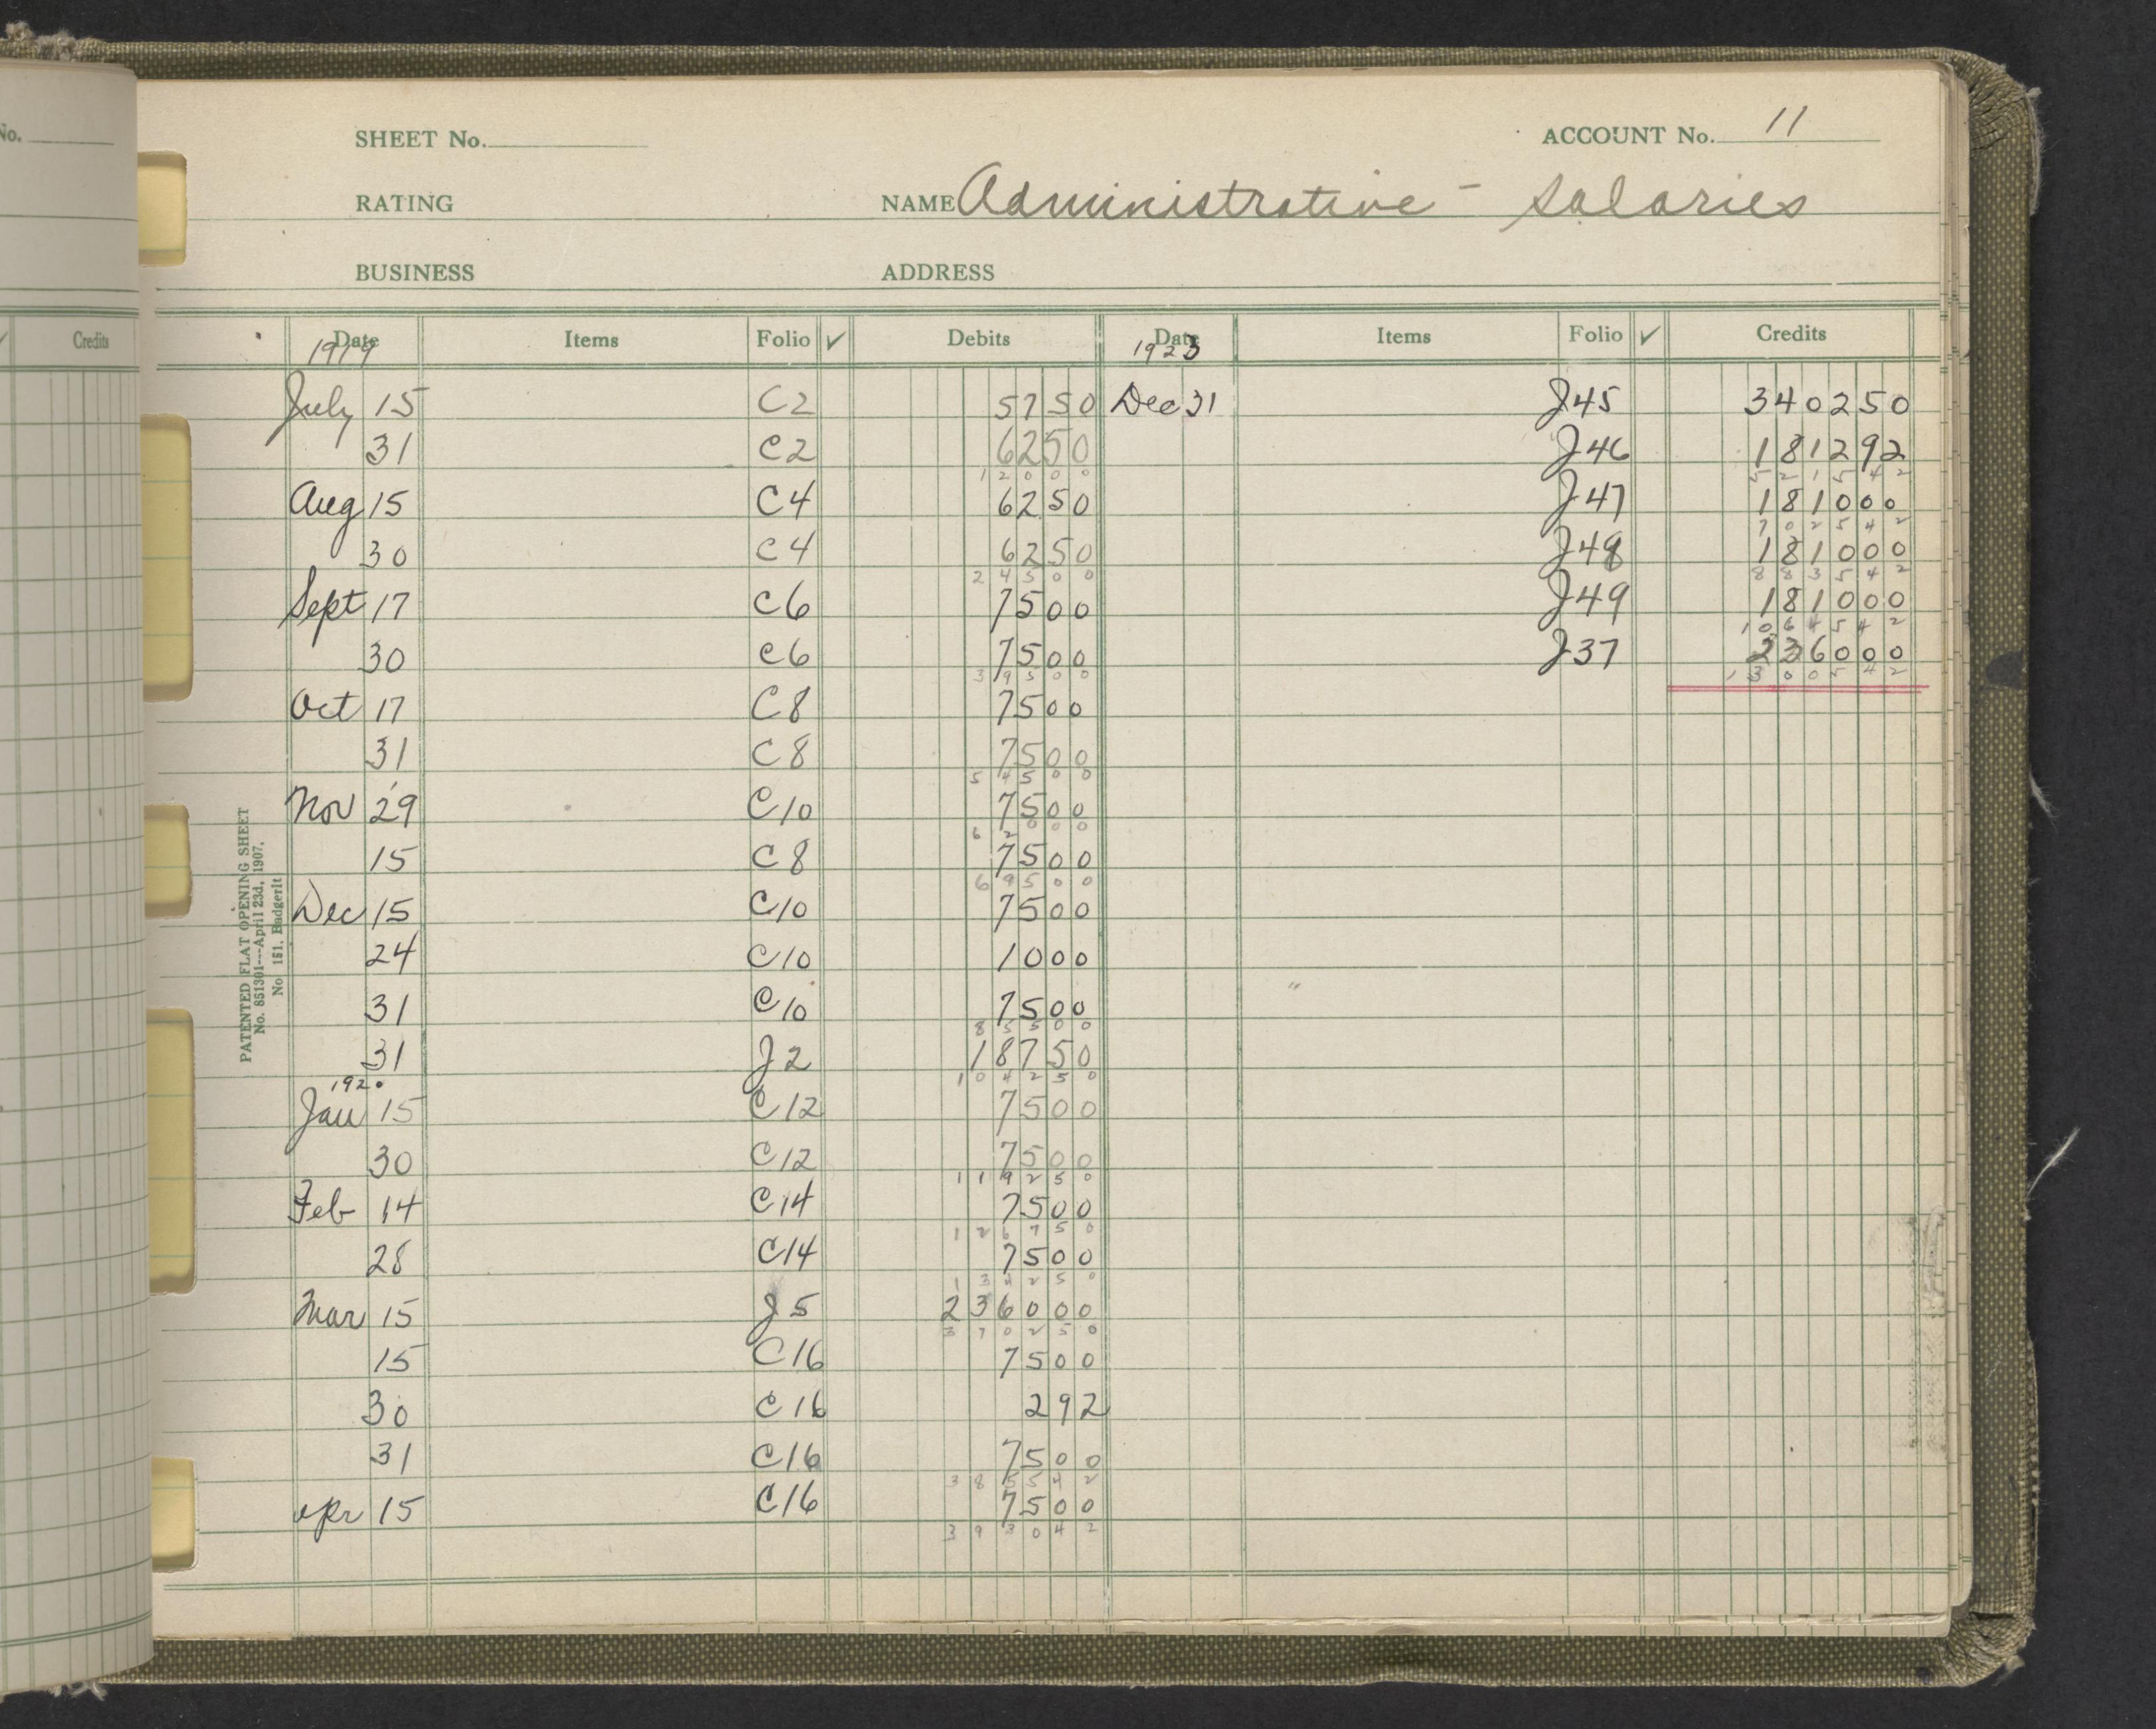 No.
Credits
SHEET No.
ACCOUNT No. 11
RATING
NAME Administrative - Salaries
BUSINESS
ADDRESS
Date Items Folio ✓ Debits Date Items Folio ✓ Credits
1919 1923
July 15 C2 57 50 Dec 31 J45 3402 50
31 C2 62 50 J46 1812 92
120 00 5215 42
Aug 15 C4 62 50 J47 1810 00
7025 42
30 C4 62 50 J48 1810 00
245 00 8835 42
Sept 17 C6 75 00 J49 1810 00
10645 42
30 C6 75 00 J37 2360 00
395 00 13005 42
Oct 17 C8 75 00
31 C8 75 00
545 00
Nov 29 C10 75 00
620 00
15 C8 75 00
695 00
Dec 15 C10 75 00
24 C10 10 00
31 C10 75 00
855 00
31 J2 187 50
1042 50
1920
Jan 15 C12 75 00
30 C12 75 00
1192 50
Feb 14 C14 75 00
1267 50
28 C14 75 00
1342 50
Mar 15 J5 2360 00
3702 50
15 C16 75 00
30 C16 2 92
31 C16 75 00
3855 42
Apr 15 C16 75 00
3930 42
PATENTED FLAT OPENING SHEET
No. 851301---April 23d, 1907.
No 151, Badgerlt